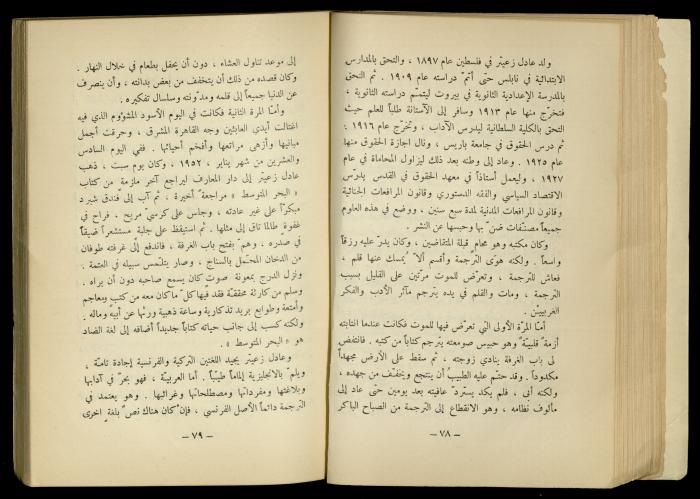 ولد عادل زعيتر في فلسطين عام ١٨٩٧ ، والتحق بالمدارس
الابتدائية في نابلس حتى أتمّ دراسته عام ١٩٠٩ . ثم التحق
بالمدرسة الإعدادية الثانوية في بيروت ليتمّم دراسته الثانوية ،
فتخرّج منها عام ١٩١٣ وسافر إلى الآستانة طلباً للعلم حيث
التحق بالكلية السلطانية ليدرس الآداب ، وتخرّج عام ١٩١٦ ؛
ثم درس الحقوق في جامعة باريس ، ونال اجازة الحقوق منها
عام ١٩٢٥ . وعاد إلى وطنه بعد ذلك ليزاول المحاماة في عام
١٩٢٧ ، وليعمل أستاذاً في معهد الحقوق في القدس يدرّس
الاقتصاد السياسي والفقه الدستوري وقانون المرافعات الجنائية
وقانون المرافعات المدنية لمدة سبع سنين . ووضع في هذه العلوم
جميعاً مصنّفات ضنّ بها وحبسها عن النشر .
وكان مكتبه وهو محامٍ قبلة المتقاضين ، وكان يدرّ عليه رزقاً
واسعاً . ولكنه هوى الترجمة وأقسم ألاّ يمسك عنها قلم ،
فعاش للترجمة ، وتعرّض للموت مرّتين على القليل بسبب
الترجمة ، ومات والقلم في يده يترجم مآثر الأدب والفكر
الغربيين .
أمّا المرّة الأولى التي تعرّض فيها للموت فكانت عندما انتابته
أزمة قلبيّة وهو حبيس صومعته يترجم كتاباً من كتبه . فانتفض
لى باب الغرفة ينادي زوجته ، ثم سقط على الأرض مجهداً
مكدوداً . وقد حتّم عليه الطبيب أن ينتجع ويخفّف من جهده ،
ولكنه أبى ، فلم يكد يستردّ عافيته بعد يومين حتى عاد إلى
مألوف نظامه ، وهو الانقطاع إلى الترجمة من الصباح الباكر
— ٧٨ —
إلى موعد تناول العشاء ، دون أن يحفل بطعام في خلال النهار .
وكان قصده من ذلك أن يتخفف من بعض بدانته ، وأن ينصرف
عن الدنيا جميعاً إلى قلمه ومدوّنته وسلسال تفكيره .
وأمّا المرة الثانية فكانت في اليوم الأسود المشؤوم الذي فيه
اغتالت أيدي العابثين وجه القاهرة المشرق ، وحرقت أجمل
مبانيها وأزهى مراتعها وأفخم أحيائها . ففي اليوم السادس
والعشرين من شهر يناير ، ١٩٥٢ ، وكان يوم سبت ، ذهب
عادل زعيتر إلى دار المعارف ليراجع آخر ملزمة من كتاب
« البحر المتوسط » مراجعة أخيرة ، ثم آب إلى فندق شبرد
مبكراً على غير عادته ، وجلس على كرسيّ مريح . فراح في
غفوة طالما تاق إلى مثلها . ثم استيقظ على جلبة مستشعراً ضيقاً
في صدره ، وهمّ بفتح باب الغرفة ، فاندفع إلى غرفته طوفان
من الدخان المحتمل بالسناج ، وصار يتلمّس سبيله في العتمة .
ونزل الدرج بمعونة صوت كان يسمع صاحبه دون أن يراه .
وسلم من كارثة محققّة فقد فيها كلّ ما كان معه من كتب ومعاجم
وأمتعة وطوابع بريد تذكارية وساعة ذهبية ورثها عن أبيه وماله .
ولكنه كسب إلى جانب حياته كتاباً جديداً أضافه إلى لغة الضاد
هو « البحر المتوسط » .
وعادل زعيتر يجيد اللغتين التركية والفرنسية إجادة تامّة ،
ويلمّ بالانجليزية إلماماً طيّباً . أما العربيّة ، فهو بحرّ في آدابها
وبلاغتها ومفرداتها ومصطلحاتها وغرائبها . وهو يعتمد في
الترجمة دائماً الأصل الفرنسي ، فإن كان هناك نصّ بلغة اخرى
— ٧٩ —